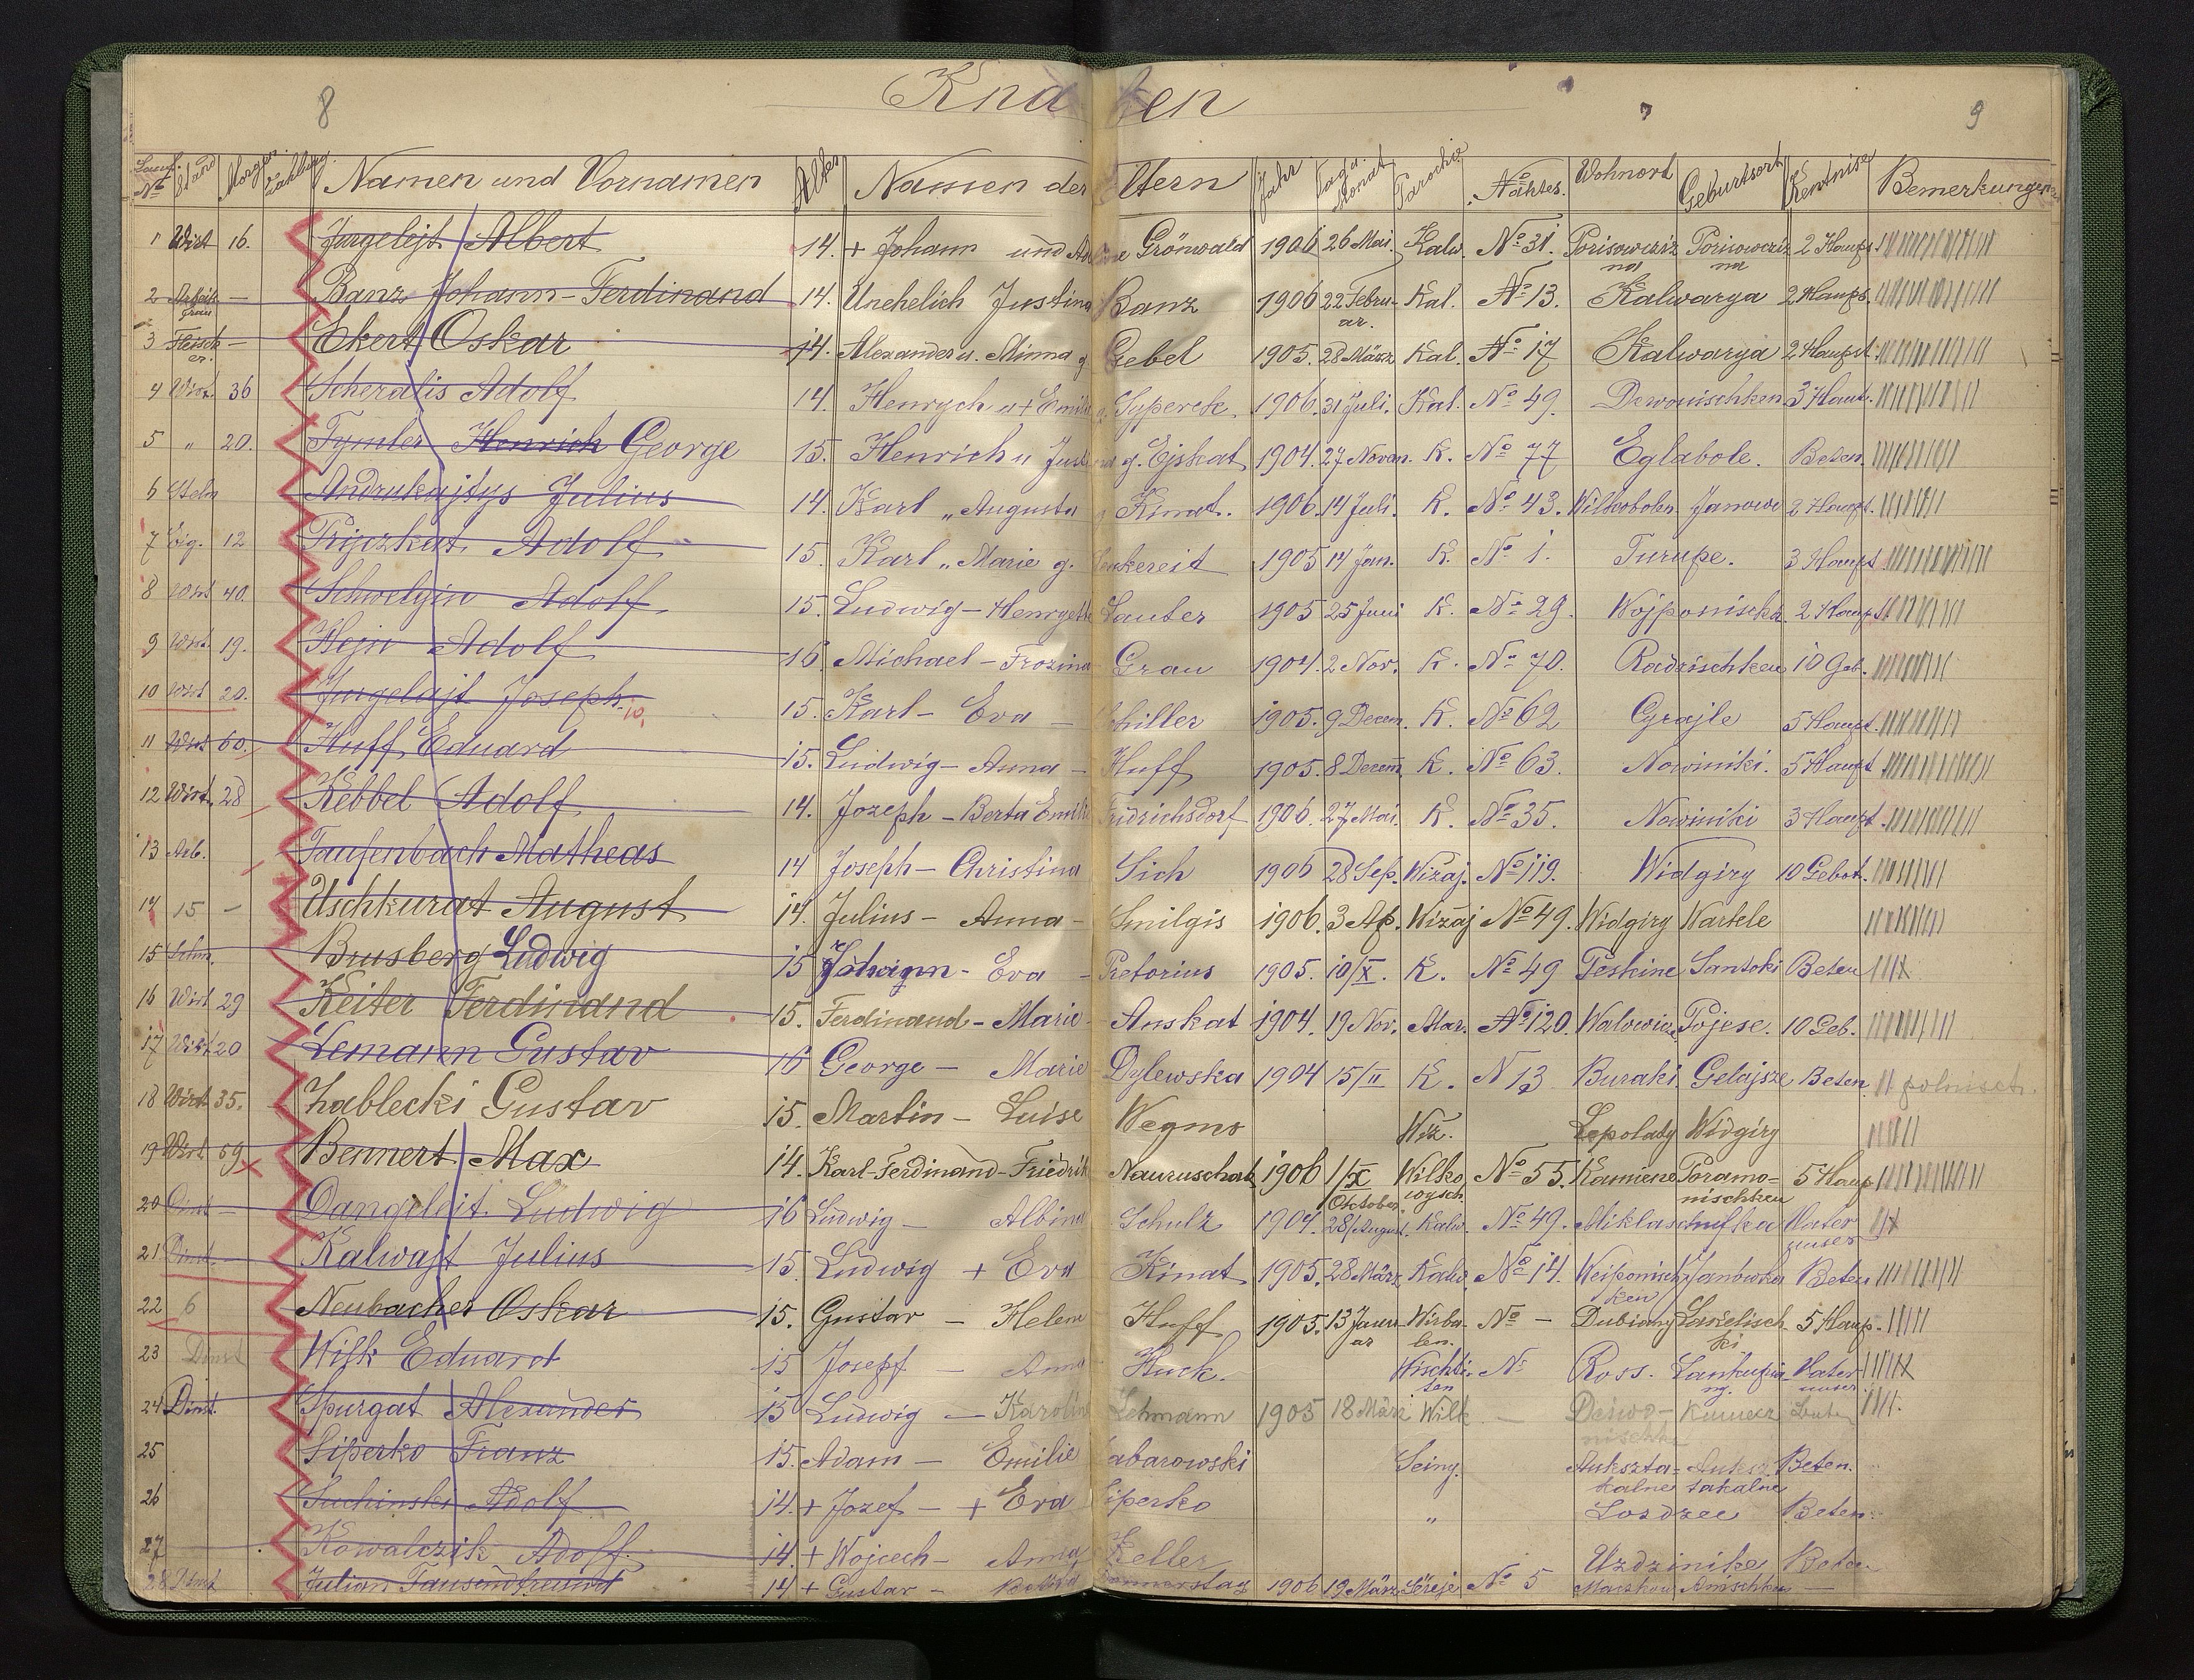 8 Knaben 9
Lauf. № Stand Morgen Zahlung Namen und Vornamen Alter Namen der Eltern Jahr Tag u. Monat Parochie № Aktes. Wohnort Geburtsort Kentnise Bemerkungen
1 Wirt 16. Jurgelejt Albert 14. + Johann und Grönwald 1906 26 Mai. Kalw. № 31. 2 Haupt.
2 — Banz Johann-Ferdinand 14. Unehelich Justina Banz 1906 22 Februar. Kal. № 13. Kalwarya 2 Haupt.
3 Fleischer. — Ekert Oskar 14. Alexander u. Minna g. Gebel 1905. 28 März Kal. № 17 Kalwarya 2 Haupt.
4 Wirt 36 Scheralis Adolf 14. Henrych u + Emilie g. Syperek 1906. 31 Juli. Kal. № 49. Dewonischken 3 Haut.
5 " 20. Tymler Henrich George 15. Henrich u Just g. Ejskat 1904. 27 Novem. K. № 77 Eglabole. Beten.
6 Andrukajtys Julius 14. Karl „ Augusta Kinat. 1906. 14 Juli. K. № 43. Wilkobolen Janowo 2 Haupt.
7 Eig. 12 Prijczkat Adolf 15. Karl „ Marie g. 1905 14 Jan. K. № 1. Turupe. 3 Haupt
8 Wirt 40. Schwelgin Adolf 15. Ludwig — Henryette Lauter 1905 25 Juni K. № 29. Wojponischk 2 Haupt.
9 Wirt. 19. Hejn Adolf 16 Michael — Frozina Grau 1904. 2 Nov. K. № 70. Radzischken 10 Geb.
10 Wirt 20. Jurgelajt Joseph. 10, 15. Karl — Eva — Schiller 1905. 9 Decem. K. № 62 Grajle 5 Haupt.
11 Wirt 60. Huff Eduard 15. Ludwig — Anna — Huff 1905. 8 Decem K. № 63. Nowiniki. 5 Haupt
12 Wirt. 28 Kebbel Adolf 14. Jozeph — Berta Emilie Fridrichsdorf 1906. 27 Mai. K. № 35. Nowiniki 3 Haupt.
13 Arb. Taufenbach Matheas 14 Joseph — Christina Sich 1906 28 Sep. Wizaj. № 119. Widgiry 10 Gebot.
14 15 — Uschkurat August 14. Julius — Anna — Smilgis 1906. 3 Ap. Wizaj № 49. Widgiry Wartele
15 Schm. Brusberg Ludwig 15 — Eva — Pretorius 1905. 10/X. K. № 49 Peskine Santoki Beten
16 Wirt 29 Keiter Ferdinand 15. Ferdinand — Marie Anskat 1904. 19 Nov. Mar. № 120. Walowice Pojese. 10 Geb.
17 Wirt 20 Lemann Gustav 16 George — Marie Dylewska 1904 15/II K. N 13 Buraki Gelajsze Beten
18 Wirt 35. Zablecki Gustav 15. Martin — Luise Wegmo Wiz. Lepolaty Widgiry polnisch.
19 Wirt 59 Bennert Max 14. Karl-Ferdinand-Friedrik Nauruschat 1906 1/X Oktober Wilkowysch № 55. Kamienc Poramonischken 5 Haup
20 Dinst — Dangeleit Ludwig 16 Ludwig — Albina Schulz 1904. 28/August. Kalw. № 49. Miklaschufka Vater unser
21 Dinst — Kalwajt Julius 15. Ludwig + Eva Kinat 1905. 28 März Kalw. № 14. Weiponischken Janowka Beten
22 6 Neubacher Oskar 15. Gustav — Helene Huff 1905. 13 Januar Wirbalen. № — Dubiany 5 Haup.
23 Dinst Wilk Eduard 15 Josepf — Anna Huck. Wischtiten № Ross. Vater unser.
24 Dinst. Spurgat Alexander 15 Ludwig — Karolin Lehmann 1905 18 März Wilk — Deiwonischke
25 Siperko Franz 15. Adam — Emilie abarowski Seiny. Auksztakalne Auksztakalne Beten.
26 Suchinski Adolf 14. + Jozef — + Eva Siperko " Losdzee Beten.
27 Kowalczik Adolf. 14. + Wojcech — Anna Keller Uzdzinike Beten
28 Dinst Julian Tausendfreund 14 + Gustav — Donnerstag 1906 19 März Sereje № 5